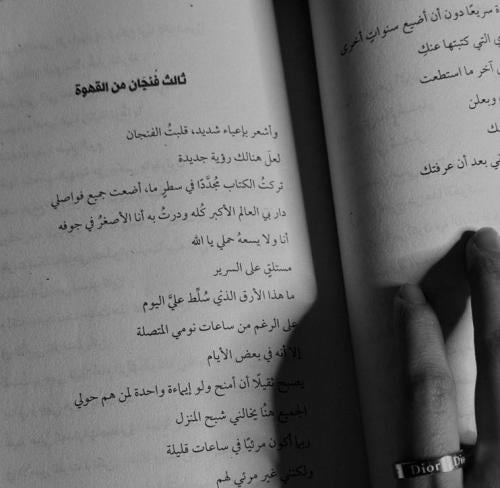 ثالث فُنجَان من القهوة
وأشعر بإعياء شديد، قلبتُ الفنجان
لعلّ هنالك رؤية جديدة
تركتُ الكتاب مُجدَّدًا في سطرٍ ما، أضعت جميع فواصلي
دار بي العالم الأكبر كُله ودرتُ به أنا الأصغرُ في جوفه
أنا ولا يسعهُ حملي يا الله
مستلقٍ على السرير
ما هذا الأرق الذي سُلِّط عليَّ اليوم
على الرغم من ساعات نومي المتصلة
إلا أنه في بعض الأيام
يصبح ثقيلًا أن أمنح ولو إيماءة واحدة لمن هم حولي
الجميع هنُا يخالني شبح المنزل
ربما أكون مرئيًا في ساعات قليلة
ولكنني غير مرئي لهم
ة سريعًا دون أن أضيع سنواتٍ أخرى
ي التي كتبتها عنكِ
آخر ما استطعت
وبعلن
ك
ي بعد أن عرفتك
Dior Di